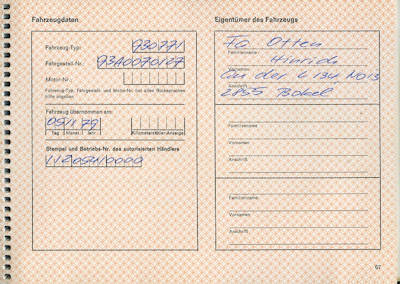 Fahrzeugdaten
Fahrzeug-Typ: 930771
Fahrgestell-Nr.: 9340070167
Motor-Nr.:
Fahrzeug-Typ, Fahrgestell- und Motor-Nr. bei allen Rücksprachen
bitte angeben.
Fahrzeug übernommen am:
79
Tag Monat Jahr Kilometerzähler-Anzeige
Stempel und Betriebs-Nr. des autorisierten Händlers
Eigentümer des Fahrzeugs
Fa. Otten
Familienname
Hinrich
Vorname
An der
Anschrift
2855 Bokel
Familienname
Vornamen
Anschrift
Familienname
Vornamen
Anschrift
67